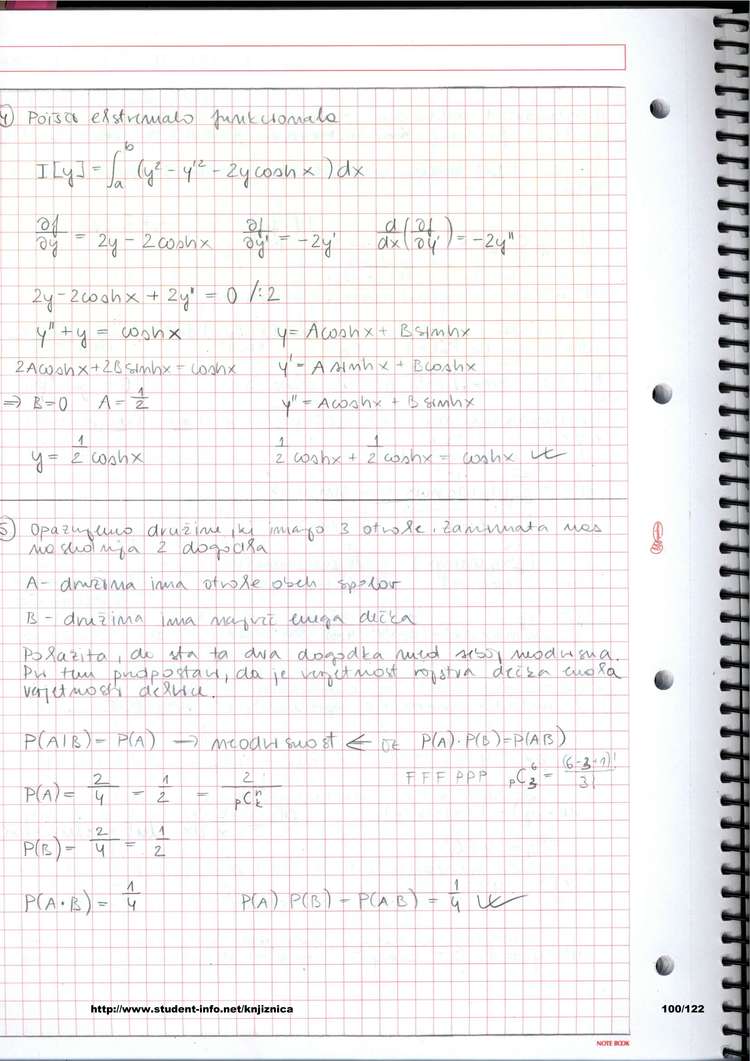 4) Poišči ekstremalo funkcionala
I[y] = ∫_a^b (y² - y'² - 2y cosh x) dx
∂f/∂y = 2y - 2coshx   ∂f/∂y' = -2y'   d/dx(∂f/∂y') = -2y''
2y - 2coshx + 2y'' = 0 /:2
y'' + y = coshx   y = A coshx + B sinhx
2A coshx + 2B sinhx = coshx   y' = A sinhx + B coshx
⇒ B=0   A = 1/2   y'' = A coshx + B sinhx
y = 1/2 coshx   1/2 coshx + 1/2 coshx = coshx
5) Opazujemo družine, ki imajo 3 otroke. Zanimata nas
naslednja 2 dogodka
A - družina ima otroke obeh spolov
B - družina ima največ enega dečka
Pokažita, da sta ta dva dogodka med seboj neodvisna.
Pri tem predpostavi, da je verjetnost rojstva dečka enaka
verjetnosti deklice.
P(A|B) = P(A) → neodvisnost ⇐ P(A)·P(B)=P(AB)
P(A) = 2/4 = 1/2 = 2/pC_k^n   FFF DDD   pC_3^6 = (6-3+1)!/3!
P(B) = 2/4 = 1/2
P(A·B) = 1/4   P(A) P(B) = P(AB) = 1/4
http://www.student-info.net/knjiznica   100/122
NOTE BOOK